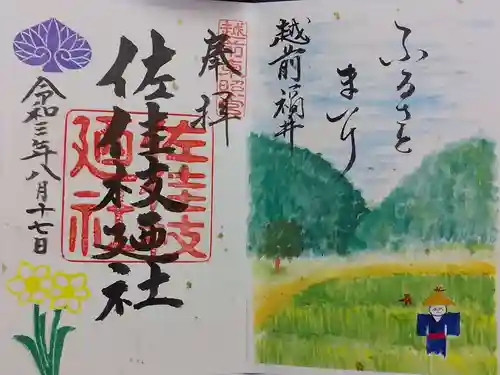 ふるさと
まいり
越前福井
奉拝
佐佳枝廼社
令和三年八月十七日
佐佳枝
廼社